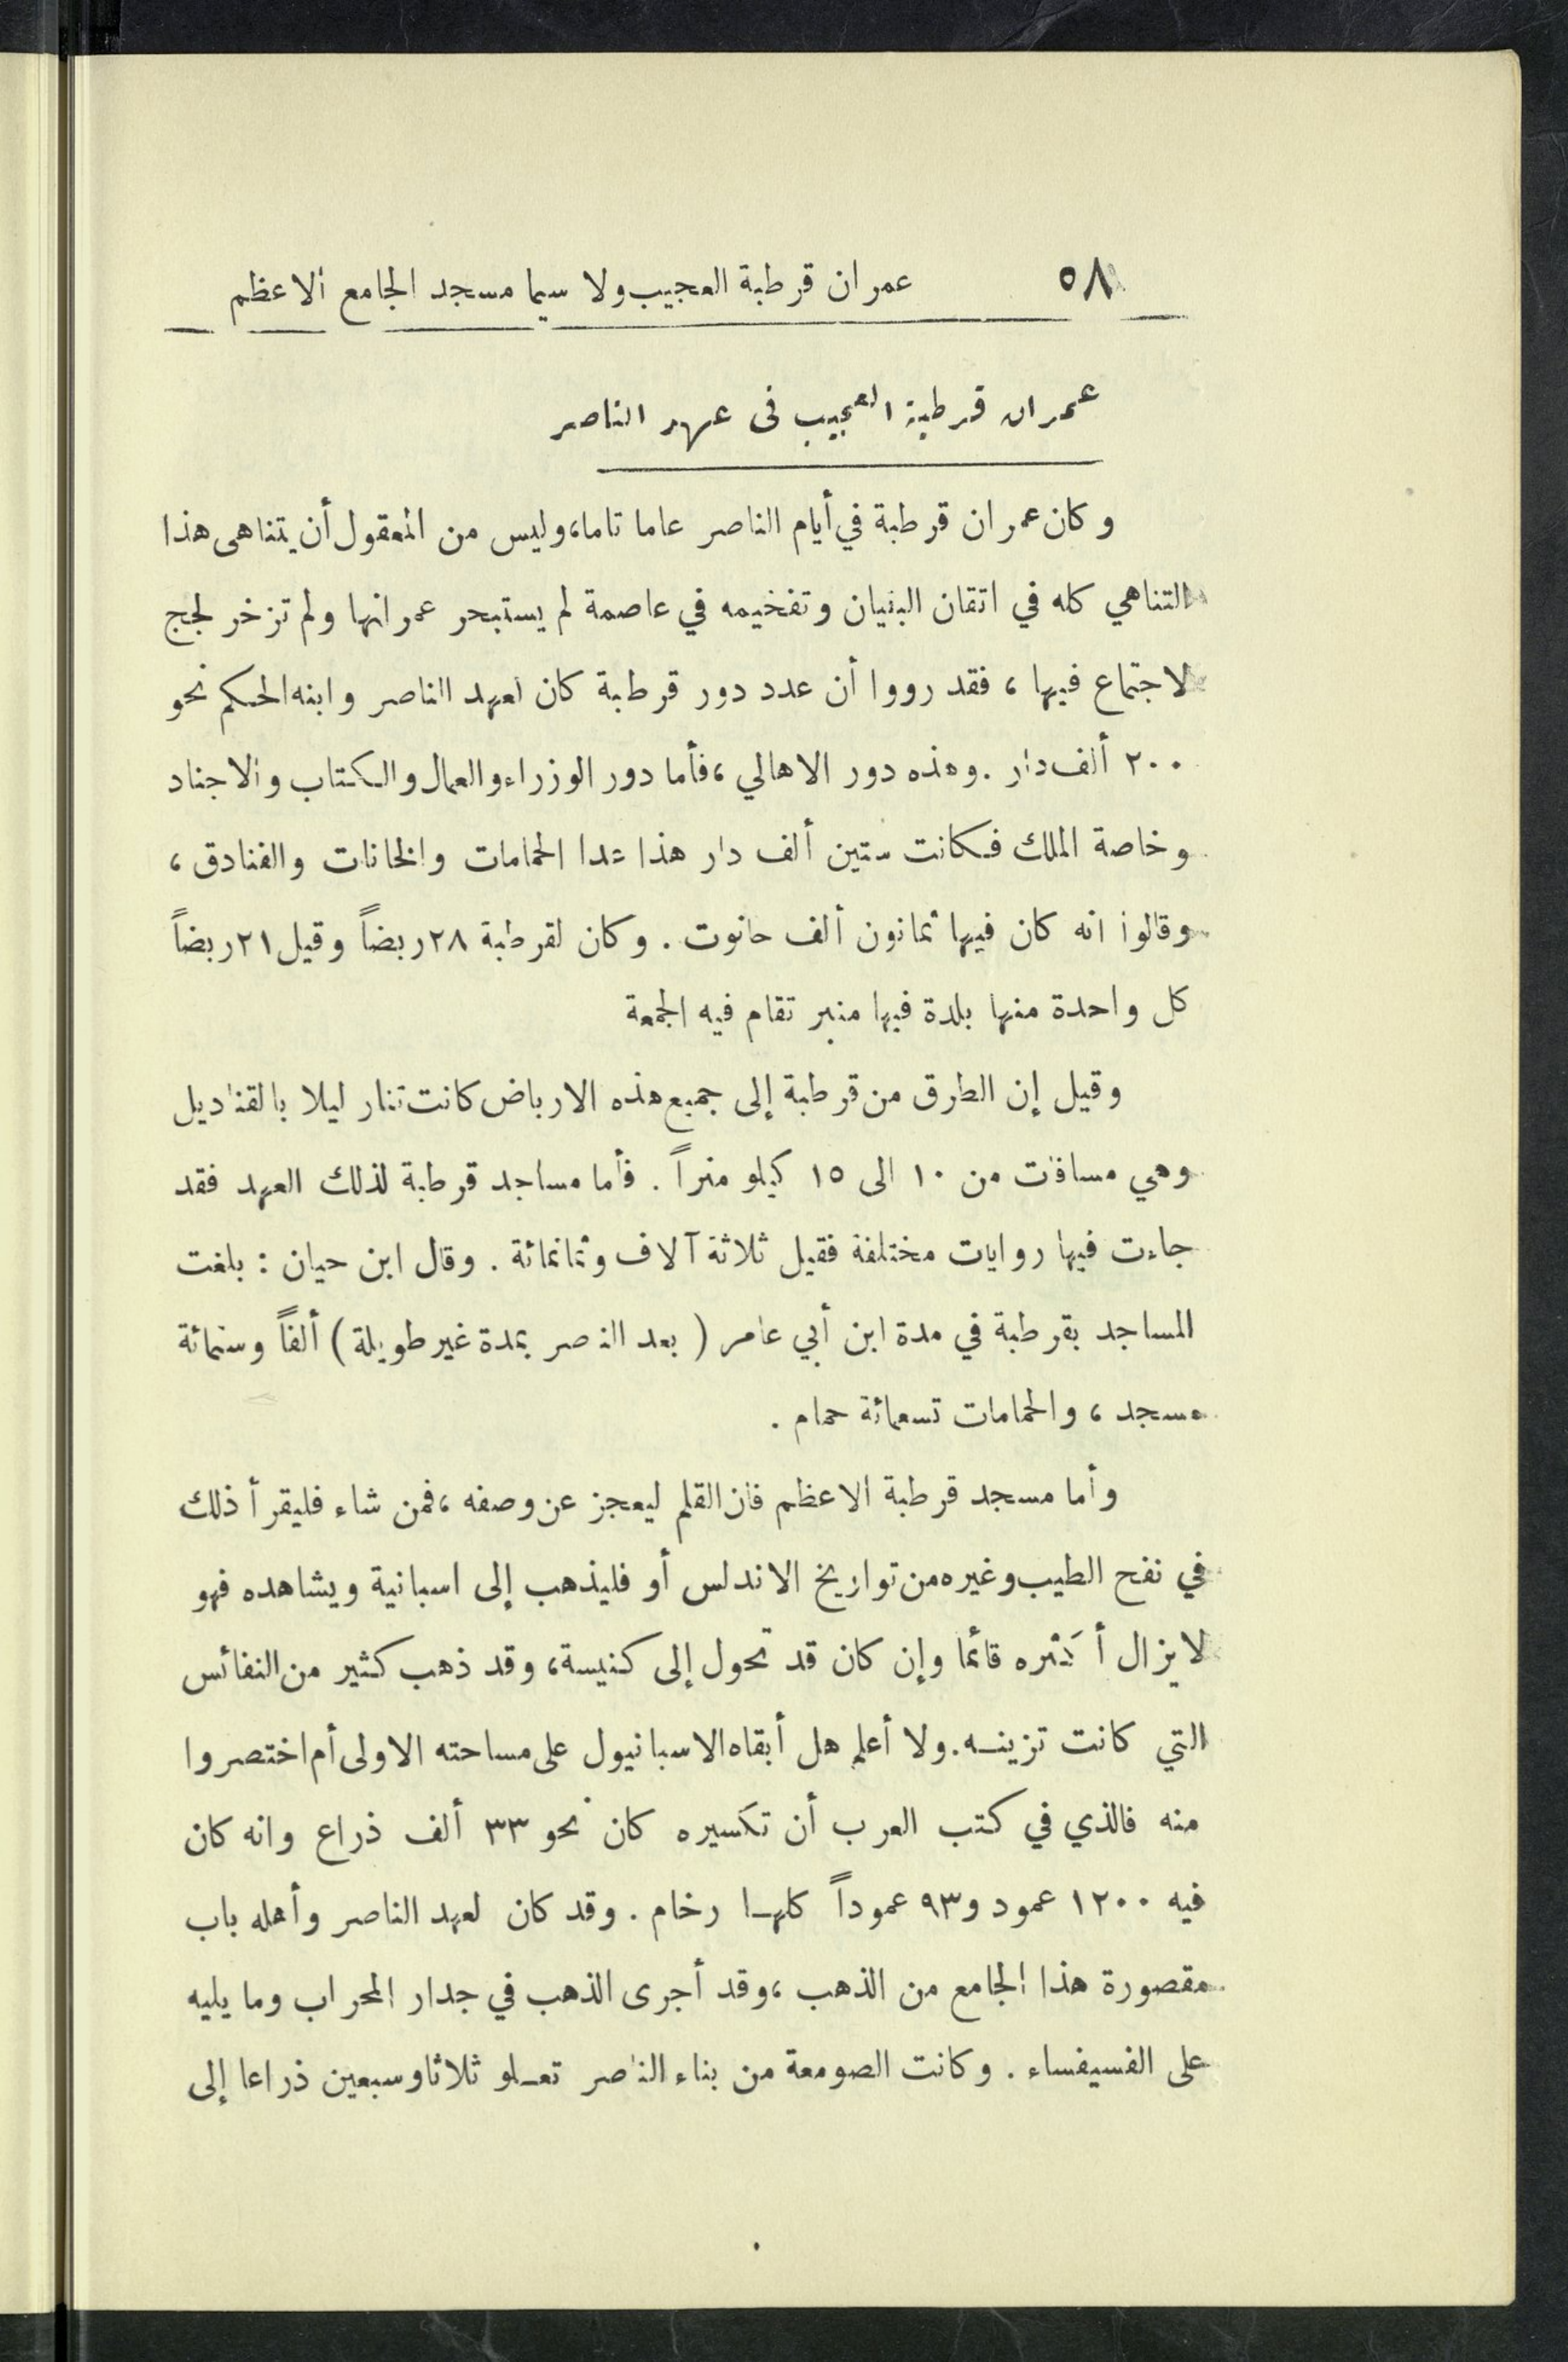 ٥٨ عمران قرطبة العجيب ولا سيما مسجد الجامع الاعظم
عمران قرطبة العجيب في عهد الناصر
وكان عمران قرطبة في أيام الناصر عاما تاما، وليس من المعقول أن يتناهى هذا
التناهي كله في اتقان البنيان وتفخيمه في عاصمة لم يستبحر عمرانها ولم تزخر لجج
الاجتماع فيها، فقد رووا أن عدد دور قرطبة كان لعهد الناصر وابنه الحكم نحو
٢٠٠ ألف دار. وهذه دور الاهالي، فأما دور الوزراء والعمال والكتاب والاجناد
وخاصة الملك فكانت ستين ألف دار هذا عدا الحمامات والخانات والفنادق،
وقالوا انه كان فيها ثمانون ألف حانوت. وكان لقرطبة ٢٨ ربضاً وقيل ٢١ ربضاً
كل واحدة منها بلدة فيها منبر تقام فيه الجمعة
وقيل إن الطرق من قرطبة إلى جميع هذه الارباض كانت تنار ليلا بالقناديل
وهي مسافات من ١٠ الى ١٥ كيلو متراً. فأما مساجد قرطبة لذلك العهد فقد
جاءت فيها روايات مختلفة فقيل ثلاثة آلاف وثمانمائة. وقال ابن حيان: بلغت
المساجد بقرطبة في مدة ابن أبي عامر (بعد الناصر بمدة غير طويلة) ألفاً وستمائة
مسجد، والحمامات تسعمائة حمام.
وأما مسجد قرطبة الاعظم فان القلم ليعجز عن وصفه، فمن شاء فليقرأ ذلك
في نفح الطيب وغيره من تواريخ الاندلس أو فليذهب إلى اسبانية ويشاهده فهو
لا يزال أكثره قائما وإن كان قد تحول إلى كنيسة، وقد ذهب كثير من النفائس
التي كانت تزينه. ولا أعلم هل أبقاه الاسبانيول على مساحته الاولى أم اختصروا
منه فالذي في كتب العرب أن تكسيره كان نحو ٣٣ ألف ذراع وانه كان
فيه ١٢٠٠ عمود و٩٣ عموداً كلها رخام. وقد كان لعهد الناصر وأهله باب
مقصورة هذا الجامع من الذهب، وقد أجرى الذهب في جدار المحراب وما يليه
على الفسيفساء. وكانت الصومعة من بناء الناصر تعلو ثلاثا وسبعين ذراعا إلى